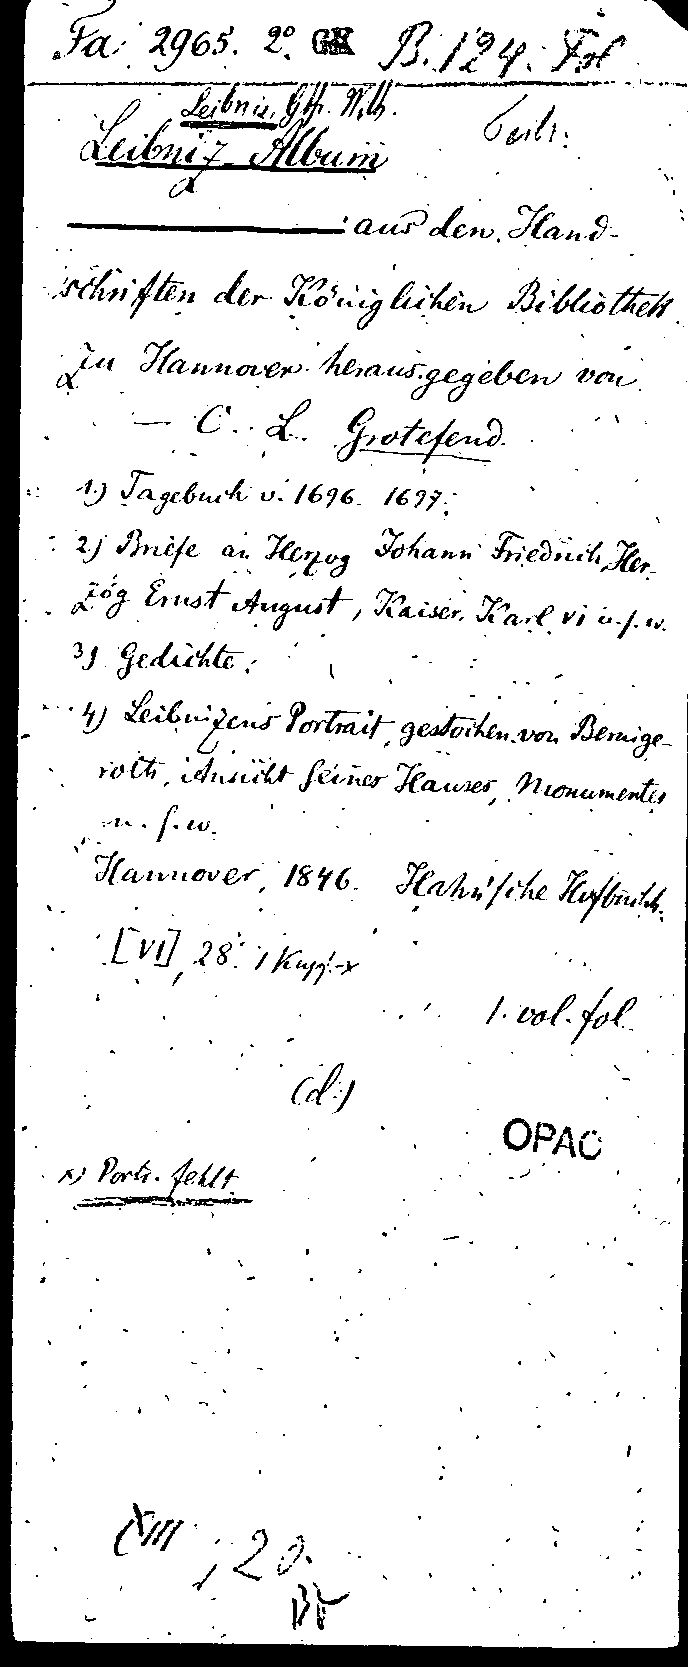 Fa 2965. 2° B. 124. Fol
Leibniz, Gfr. Wilh.
Leibniz-Album
———: aus den Hand-
schriften der Königlichen Bibliothek
zu Hannover herausgegeben von
— C. L. Grotefend.
1.) Tagebuch v. 1696. 1697.
2) Briefe an Herzog Johann Friedrich, Her-
zog Ernst August, Kaiser Karl VI u. s. w.
3) Gedichte.
4) Leibnizens Portrait, gestochen von Bernige-
roth, Ansicht seines Hauses, Monumentes
u. s. w.
Hannover, 1846. Hahn'sche Hofbuchh.
[VI], 28. 1 Kupf. x
1. vol. fol.
(d.)
OPAC
x) Portr. fehlt
XIII, 20.